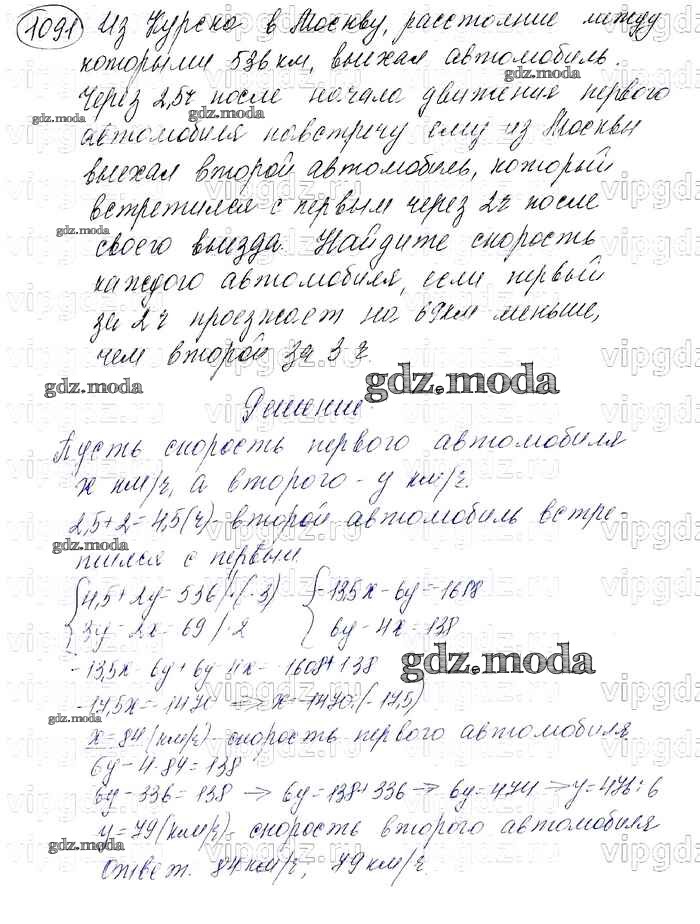 1091 Из Курска в Москву, расстояние между
которыми 536 км, выехал автомобиль.
Через 2,5 ч после начала движения первого
автомобиля навстречу ему из Москвы
выехал второй автомобиль, который
встретился с первым через 2 ч после
своего выезда. Найдите скорость
каждого автомобиля, если первый
за 2 ч проезжает на 69 км меньше,
чем второй за 3 ч.
gdz.moda
Решение
Пусть скорость первого автомобиля
x км/ч, а второго - y км/ч.
2,5 + 2 = 4,5 (ч) - второй автомобиль встре-
тился с первым.
{4,5 + 2y = 536 | · (-3) {-13,5x - 6y = -1608
3y - 2x = 69 | · 2 6y - 4x = 138
-13,5x - 6y + 6y - 4x = -1608 + 138
gdz.moda
-17,5x = -1470 => x = -1470 : (-17,5)
x = 84 (км/ч) - скорость первого автомобиля
6y - 4 · 84 = 138
6y - 336 = 138 -> 6y = 138 + 336 -> 6y = 474 -> y = 474 : 6
y = 79 (км/ч) - скорость второго автомобиля
Ответ. 84 км/ч, 79 км/ч.